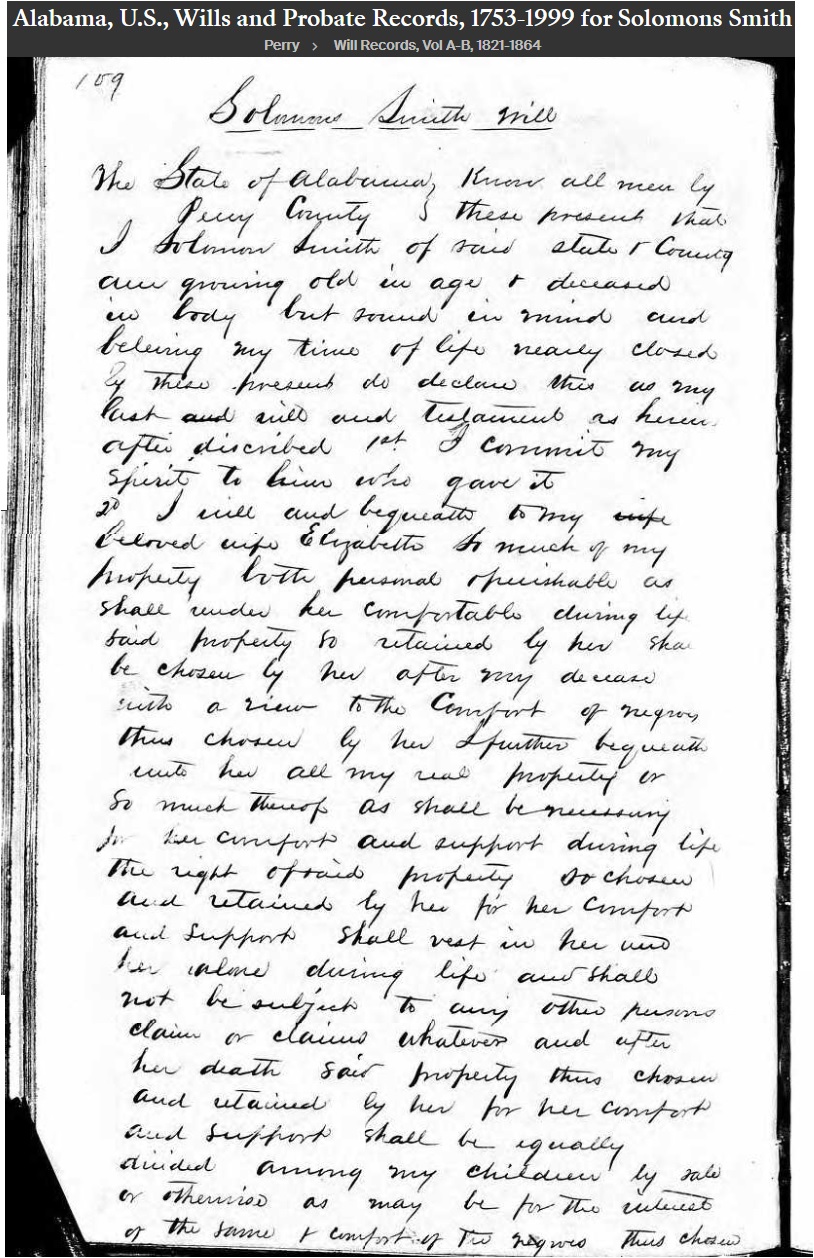 Alabama, U.S., Wills and Probate Records, 1753-1999 for Solomons Smith
Perry > Will Records, Vol A-B, 1821-1864
109
Solomons Smith Will
The State of Alabama } Know all men by
Perry County } these present that
I Solomon Smith of said state & County
am growing old in age & deceased
in body but sound in mind and
beleiving my time of life nearly closed
by these present do declare this as my
last and will and testament as herein
after discribed 1st I commit my
spirit to him who gave it
2d I will and bequeath to my wife
beloved wife Elizabeth so much of my
property both personal & perishable as
shall render her comfortable during life
said property so retained by her sha
be chosen by her after my decease
with a view to the Comfort of negroes
thus chosen by her I further bequeath
unto her all my real property or
so much thereof as shall be necessary
for her comfort and support during life
the right of said property so chosen
and retained by her for her comfort
and support shall vest in her and
her alone during life and shall
not be subject to any other persons
claim or claims whatever and after
her death said property thus chosen
and retained by her for her comfort
and support shall be equally
divided among my children by sale
or otherwise as may be for the interest
of the same & comfort of the negroes thus chosen